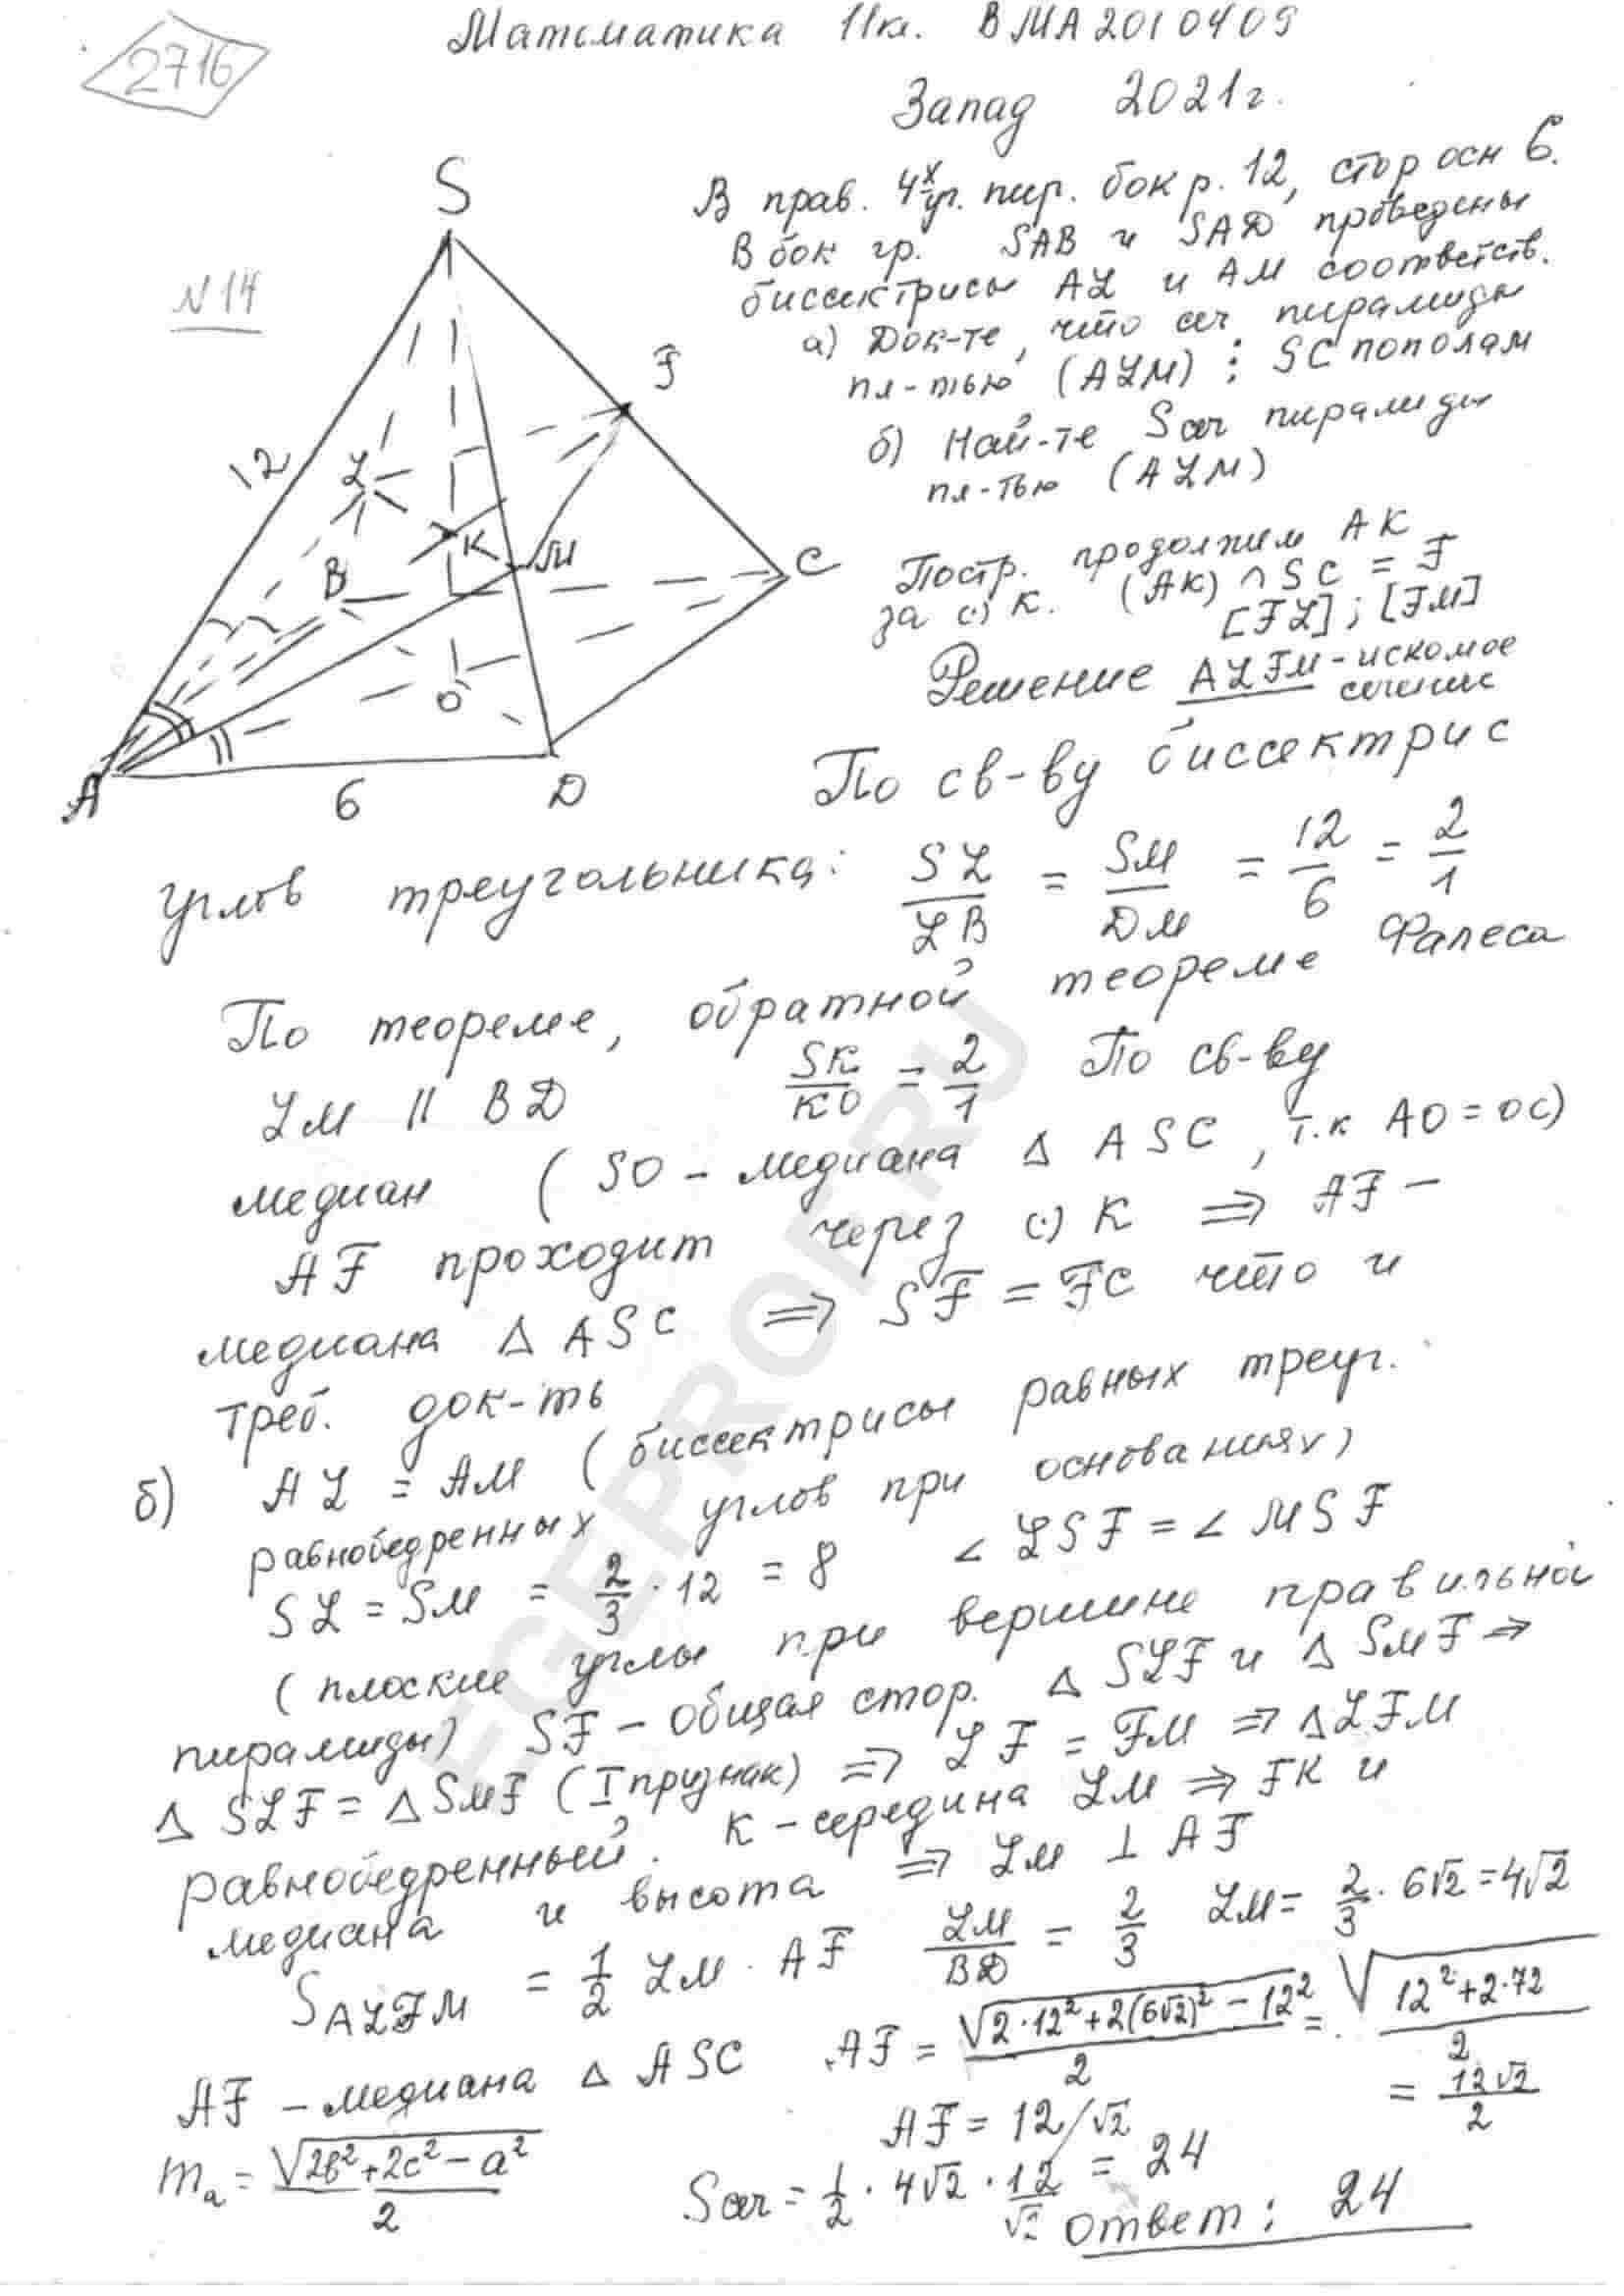 2716
Математика 11кл. ВМА2010409
Запад 2021г.
N14
В прав. 4х уг. пир. бок р. 12, стор осн 6.
В бок гр. SAB и SAD проведены
биссектрисы AL и AM соответств.
а) Док-те, что сеч пирамиды
пл-тью (ALM) ⋮ SC пополам
б) Най-те Sсеч пирамиды
пл-тью (ALM)
S
F
12
L
K
M
B
C
O
A
6
D
Постр. продолжим AK
за (·) K. (AK) ∩ SC = F
[FL]; [FM]
Решение ALFM - искомое
сечение
По св-ву биссектрис
углов треугольника: SL/LB = SM/DM = 12/6 = 2/1
По теореме, обратной теореме Фалеса
LM || BD SK/KO = 2/1 По св-ву
медиан ( SO - медиана Δ ASC, т.к AO = OC)
AF проходит через (·) K ⇒ AF -
медиана Δ ASC ⇒ SF = FC что и
треб. док-ть
б) AL = AM ( биссектрисы равных треуг.
равнобедренных углов при основаниях)
SL = SM = 2/3 · 12 = 8 ∠ LSF = ∠ MSF
( плоские углы при вершине правильной
пирамиды) SF - общая стор. Δ SLF и Δ SMF ⇒
Δ SLF = Δ SMF (I признак) ⇒ LF = FM ⇒ Δ LFM
равнобедренный. K - середина LM ⇒ FK и
медиана и высота ⇒ LM ⊥ AF
SALFM = 1/2 LM · AF LM/BD = 2/3 LM = 2/3 · 6√2 = 4√2
AF - медиана Δ ASC AF = √(2·12²+2(6√2)²-12²)/2 = √(12²+2·72)/2
= 12√2/2
ma = √(2b²+2c²-a²)/2 AF = 12/√2
Sсеч = 1/2 · 4√2 · 12/√2 = 24
Ответ: 24
EGEPROF.RU